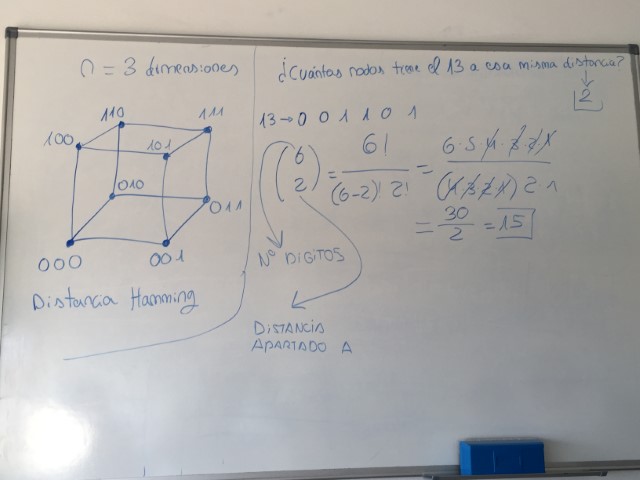 n = 3 dimensiones
110
111
100
101
010
011
000
001
Distancia Hamming
¿Cuántos nodos tiene el 13 a esa misma distancia?
2
13→0 0 1 1 0 1
(6 2) = 6! / (6-2)! 2! = 6·5·4·3·2·1 / (4·3·2·1) 2 1
= 30/2 = 15
Nº DIGITOS
DISTANCIA
APARTADO A